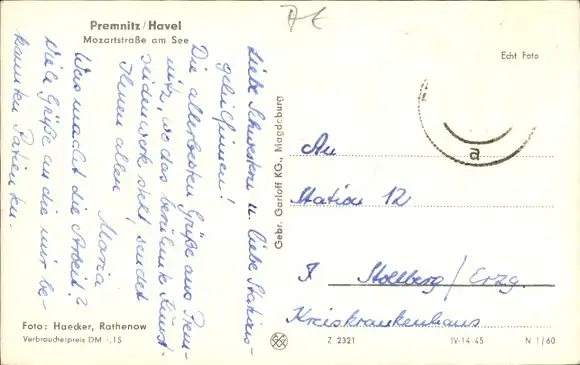 Premnitz/Havel
Mozartstraße am See
Æ
Echt Foto
Liebe Schwestern u. liebe Stations-
gehilfinnen!
Die allerbesten Grüße aus Prem-
nitz, wo das berühmte Kunst-
seidenwerk steht, sendet
Ihnen allen
Maria
Was macht die Arbeit?
Viele Grüße an die mir be-
kannten Patienten.
Gebr. Garloff KG., Magdeburg
a
An
Station 12
Stollberg/Erzg.
Kreiskrankenhaus
Foto: Haecker, Rathenow
Verbraucherpreis DM -,15
Z 2321
IV-14-45
N 1/60